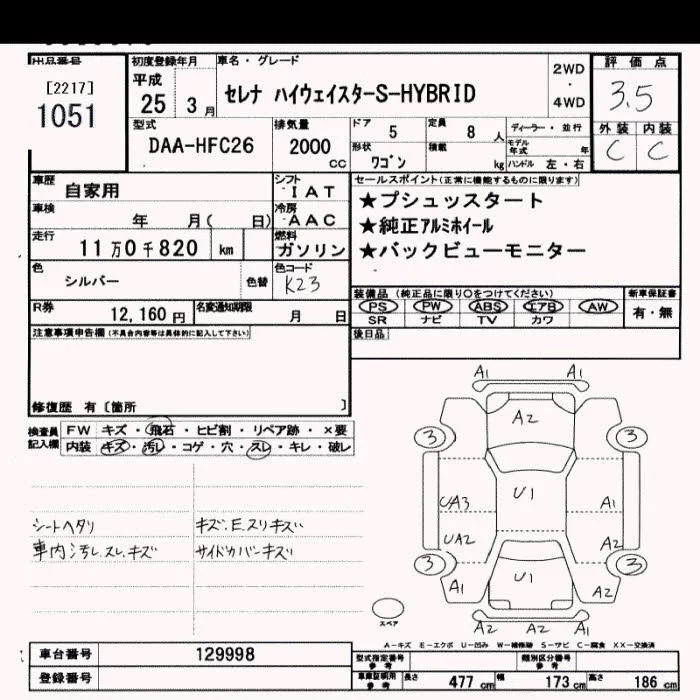 出品番号
[2217]
1051
初度登録年月
平成
25 3 月
車名・グレード
セレナ ハイウェイスターS-HYBRID
2WD
・
4WD
評価点
3.5
外装 内装
C C
型式
DAA-HFC26
排気量
2000 cc
ドア 5
定員 8 人
形状 ワゴン
積載 kg
ディーラー・並行
モデル年式 年
ハンドル 左・右
車歴 自家用
シフト IAT
車検 年 月( 日)
冷房 AAC
走行 11万0千820 km
燃料 ガソリン
色 シルバー 色替
色コード K23
R券 12,160 円
名変通知期限 月 日
セールスポイント(正常に機能するものに限ります)
★プシュッスタート
★純正アルミホイール
★バックビューモニター
装備品 (純正品に限り○をつけてください)
PS PW ABS エアB AW
SR ナビ TV カワ
新車保証書
有・無
後日品
注意事項申告欄(不具合内容等は具体的に記入して下さい)
修復歴 有〔箇所 〕
検査員記入欄
FW キズ・飛石・ヒビ割・リペア跡・×要
内装 キズ・汚レ・コゲ・穴・スレ・キレ・破レ
シートヘタリ
車内汚レ.スレ.キズ
キズ.E.スリキズ
サイドカバーキズ
A1 A1
A2
3 3
UA3 U1 A1
UA2 A2
3 3
A1 U1 A2
A2 A2 A1
スペア
A－キズ E－エクボ U－凹み W－補修跡 S－サビ C－腐食 XX－交換済
車台番号 129998
登録番号
型式指定番号 参考
類別区分番号 参考
車庫証明用 参考 長さ 477 cm 幅 173 cm 高さ 186 cm